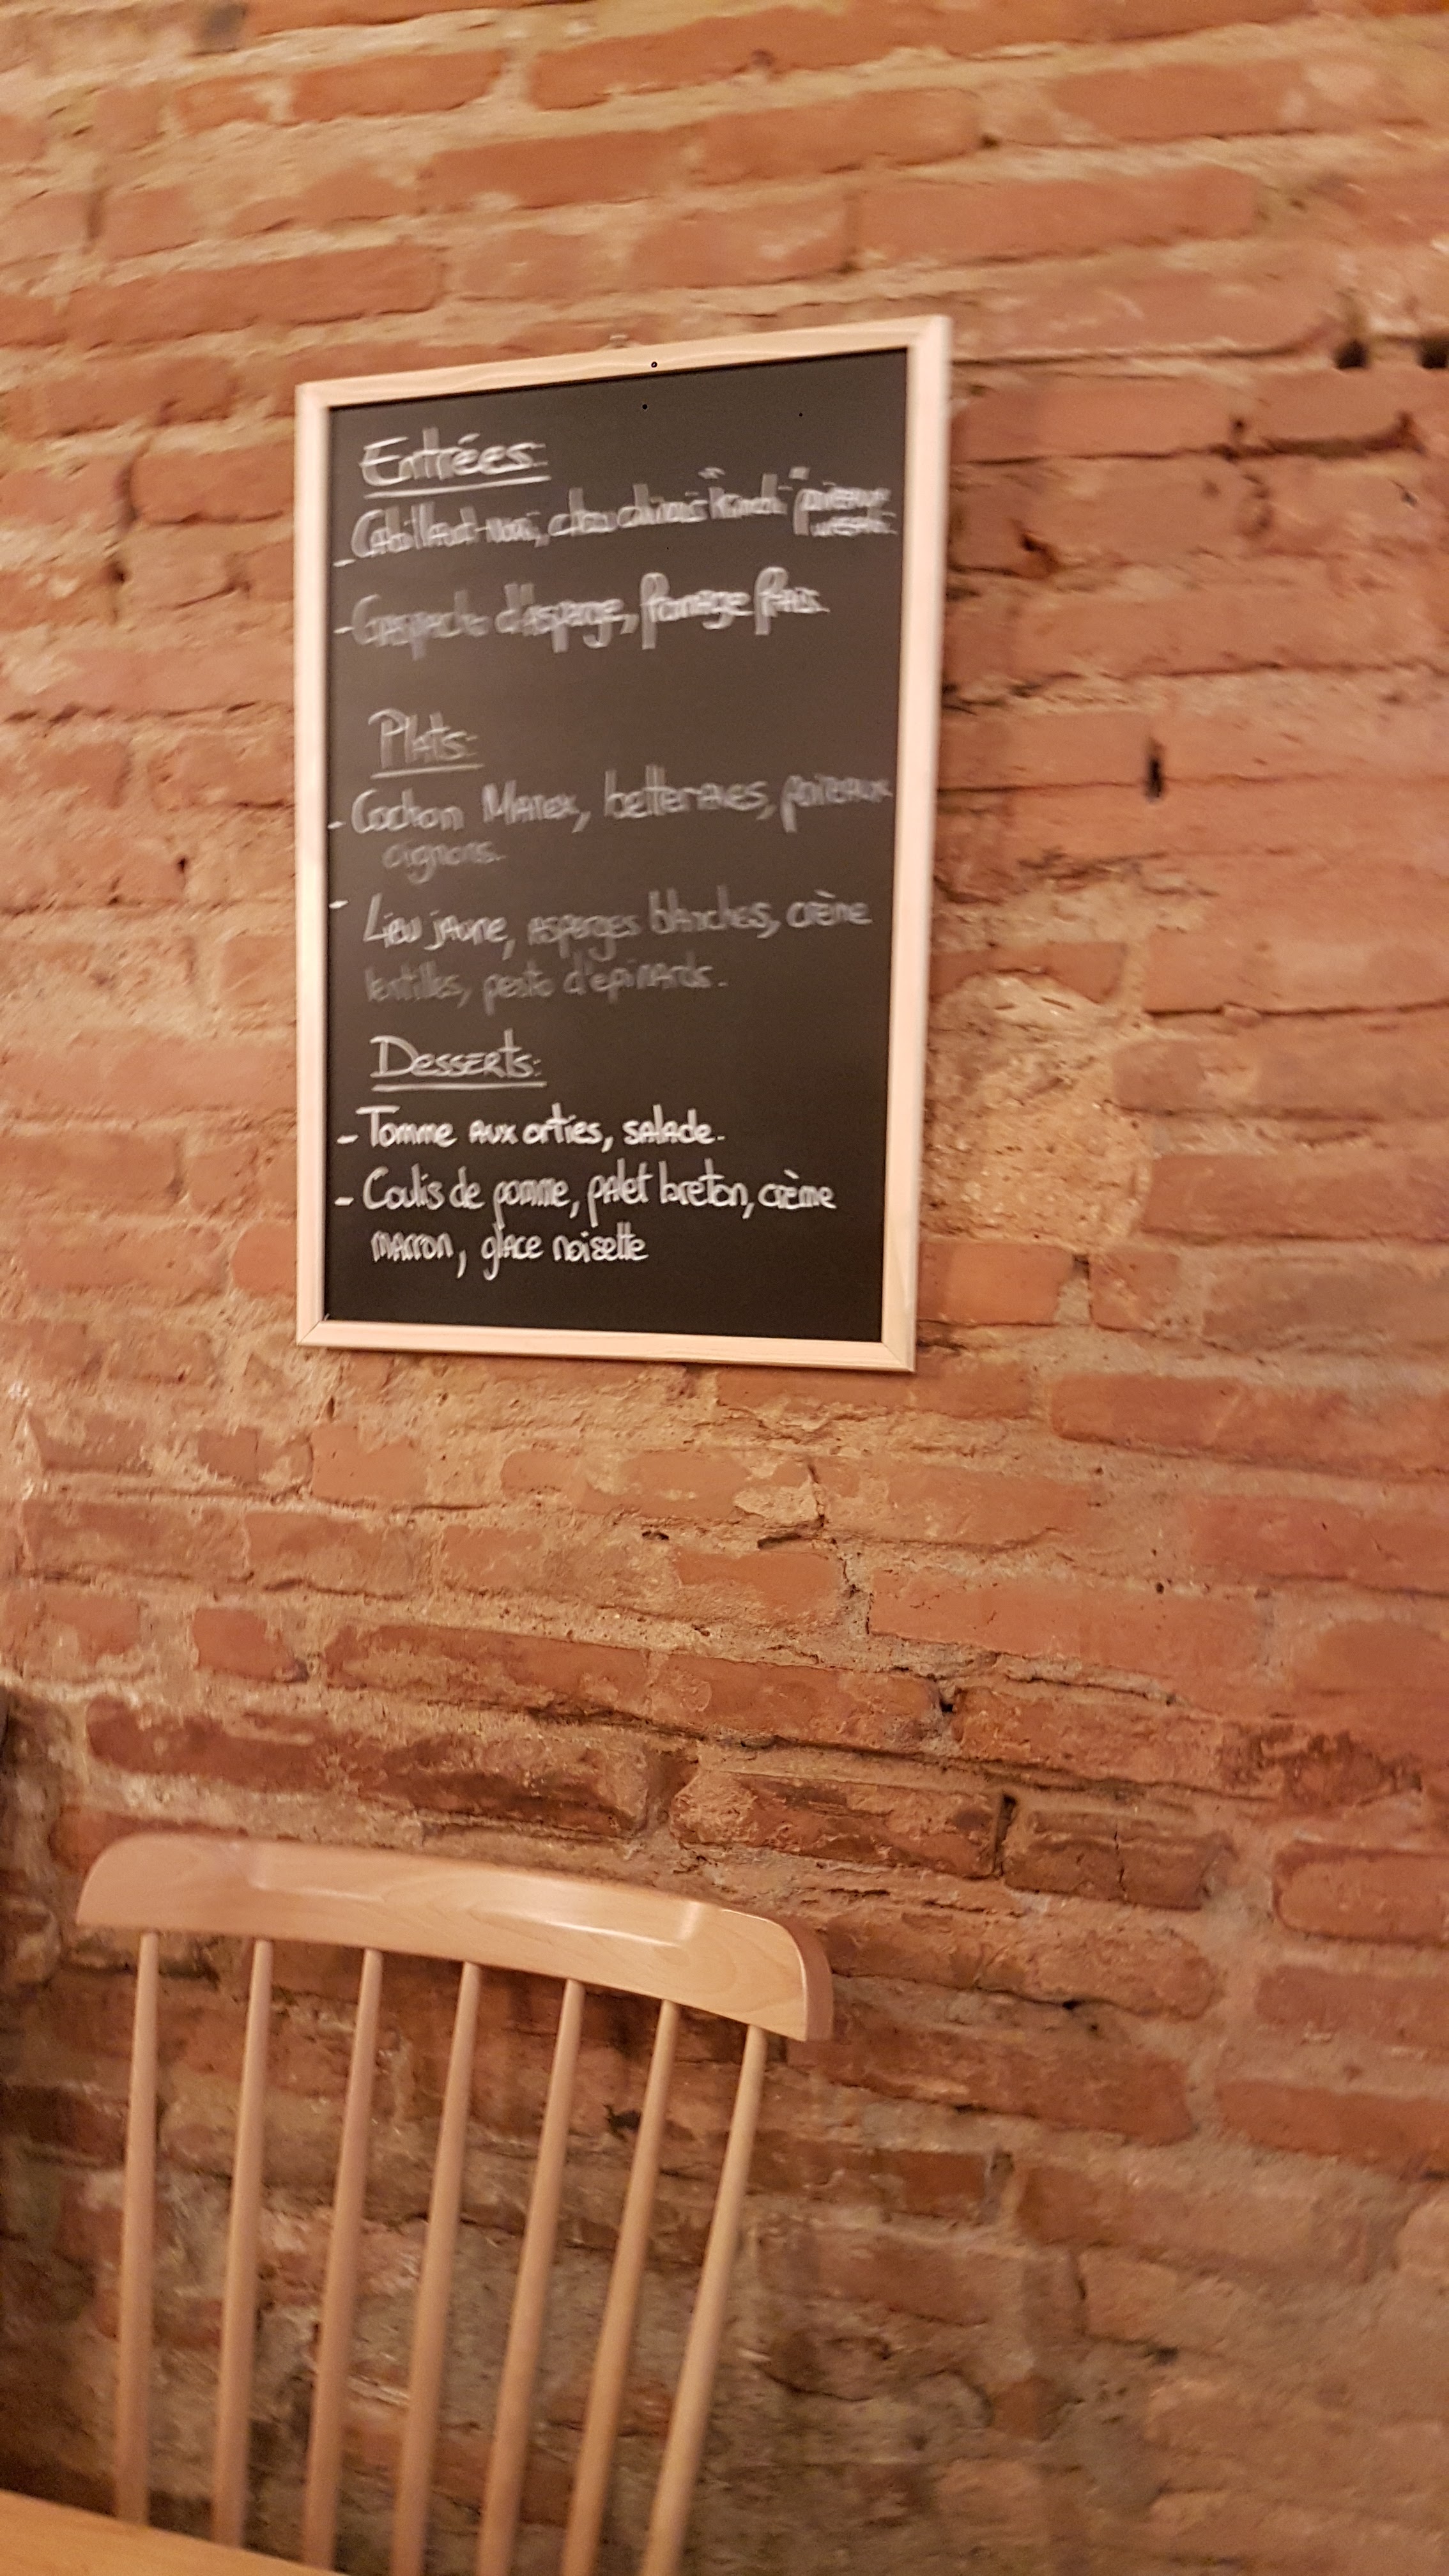 Entrées:
- Cabillaud , chou chinois
- Gaspacho d'asperge, fromage frais.
Plats:
- Cochon betteraves, poireaux
oignons.
- Lieu jaune, asperges blanches, crème
lentilles, pesto d'epinards.
Desserts:
- Tomme aux orties, salade.
- Coulis de pomme, palet breton, crème
marron, glace noisette